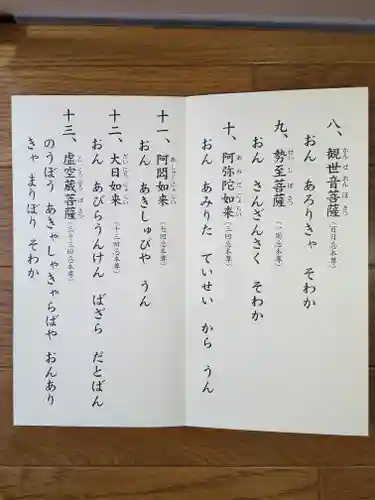 八、観世音菩薩（百日忌本尊）
おん あろりきゃ そわか
九、勢至菩薩（一周忌本尊）
おん さんざんさく そわか
十、阿弥陀如来（三回忌本尊）
おん あみりた ていせい から うん
十一、阿閦如来（七回忌本尊）
おん あきしゅびや うん
十二、大日如来（十三回忌本尊）
おん あびらうんけん ばざら だとばん
十三、虚空蔵菩薩（三十三回忌本尊）
のうぼう あきゃしゃきゃらばや おんあり
きゃ まりぼり そわか